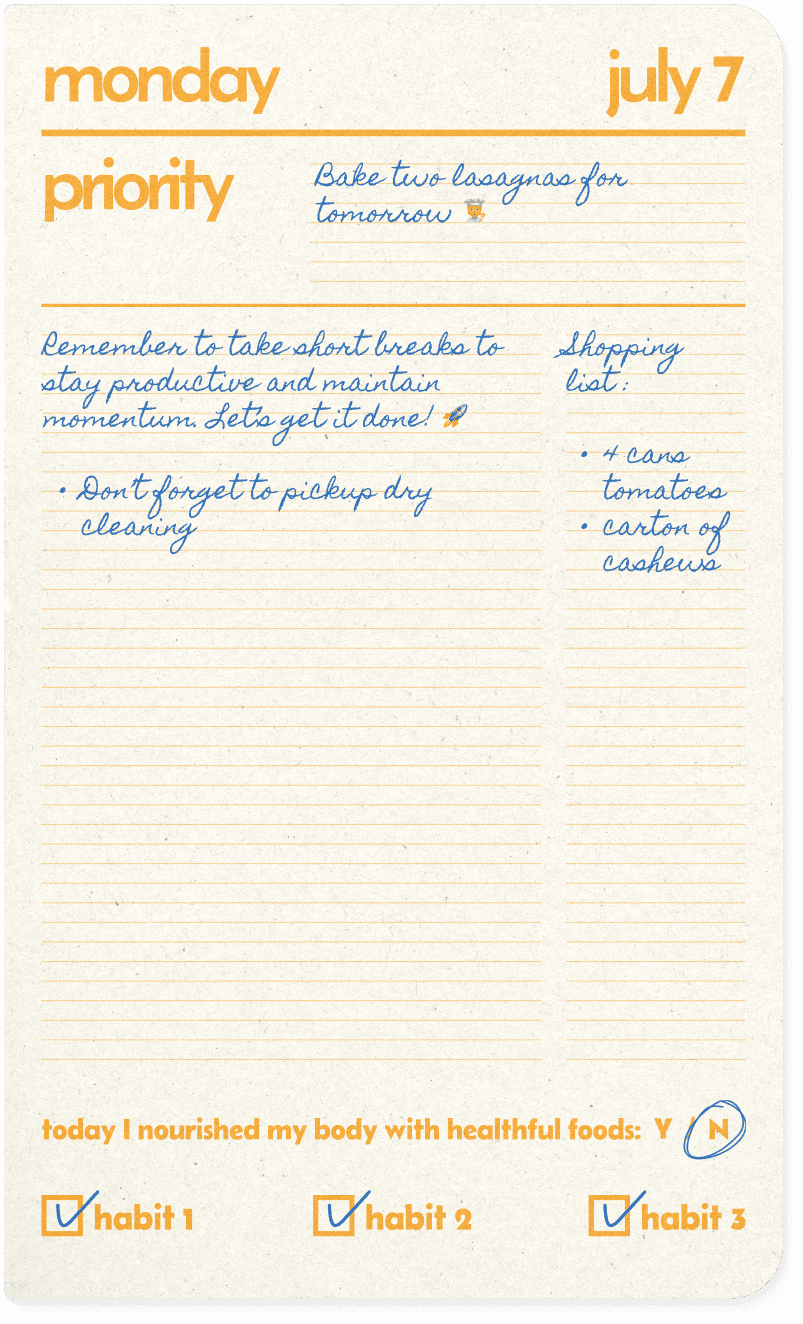 monday july 7
priority
Bake two lasagnas for
tomorrow 👨‍🍳
Remember to take short breaks to
stay productive and maintain
momentum. Let's get it done! 🚀
• Don't forget to pickup dry
cleaning
Shopping
list:
• 4 cans
tomatoes
• carton of
cashews
today I nourished my body with healthful foods: Y / N
habit 1 habit 2 habit 3